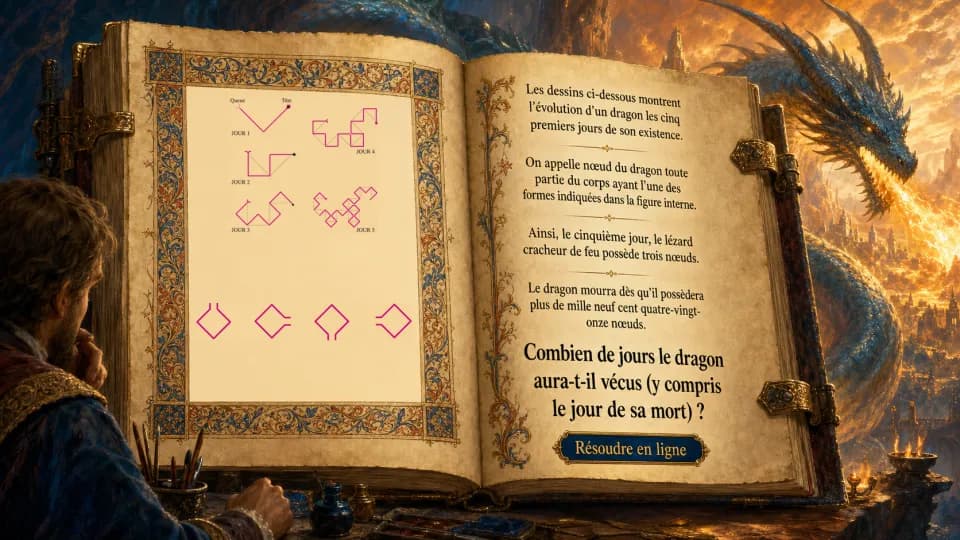 Queue Tête
JOUR 1
JOUR 4
JOUR 2
JOUR 3
JOUR 5
Les dessins ci-dessous montrent
l'évolution d'un dragon les cinq
premiers jours de son existence.
On appelle nœud du dragon toute
partie du corps ayant l'une des
formes indiquées dans la figure interne.
Ainsi, le cinquième jour, le lézard
cracheur de feu possède trois nœuds.
Le dragon mourra dès qu'il possèdera
plus de mille neuf cent quatre-vingt-
onze nœuds.
Combien de jours le dragon
aura-t-il vécus (y compris
le jour de sa mort) ?
Résoudre en ligne